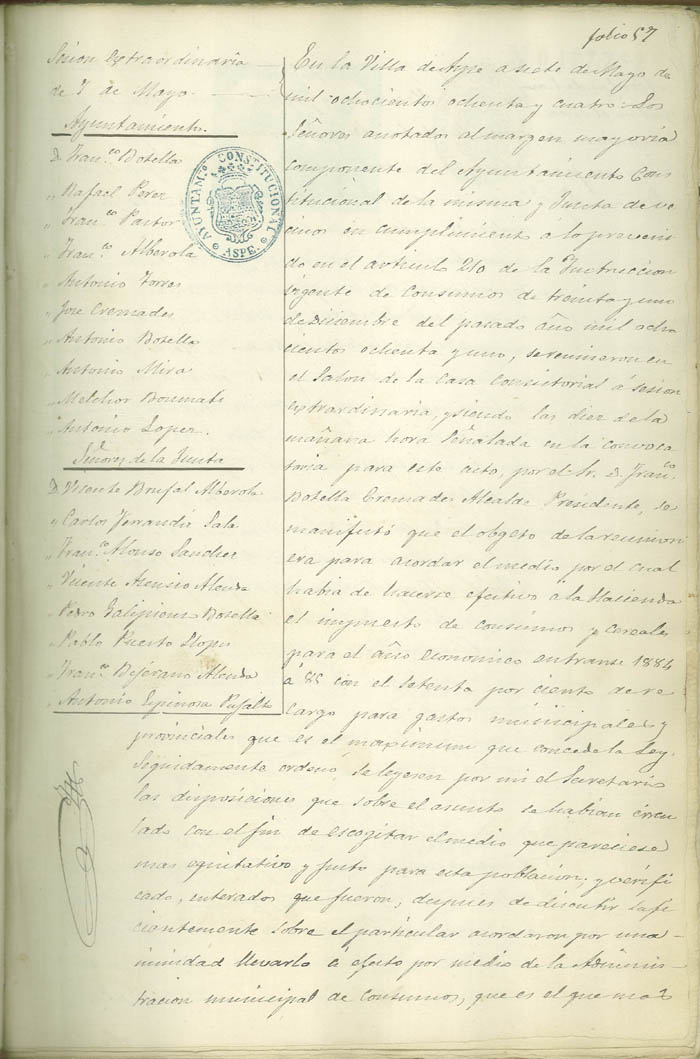 folio 57
Sesion extraordinaria
de 7 de Mayo.
Ayuntamiento.
D. Fran.co Botella
" Rafael Perez
" Fran.co Pastor
" Fran.co Alberola
" Antonio Torres
" Jose Cremades
" Antonio Botella
" Antonio Mira
" Melchor Boumati
" Antonio Lopez.
Señores de la Junta
D. Vicente Brufal Alberola
" Carlos Ferrandis Sala
" Fran.co Alonso Sanchez
" Vicente Asensio Alenda
" Pedro Galipienso Botella
" Pablo Puerto Llopis
" Fran.co Bejerano Alenda
" Antonio Espinosa Pujalte
AYUNTAM.to CONSTITUCIONAL
ASPE.
En la Villa de Aspe a siete de Mayo de
mil ochocientos ochenta y cuatro: Los
Señores anotados al margen mayoria
componente del Ayuntamiento Cons
titucional de la misma y Junta de ve
cinos en cumplimiento a lo preveni
do en el articulo 210 de la Instruccion
vigente de Consumos de treinta y uno
de Diciembre del pasado año mil ocho
cientos ochenta y uno, se reunieron en
el Salon de la Casa Consistorial á sesion
extraordinaria, y siendo las diez de la
mañana hora señalada en la convoca
toria para este acto, por el Sr. D. Fran.co
Botella Cremades Alcalde Presidente, se
manifestó que el obgeto de la reunion
era para acordar el medio por el cual
habia de hacerse efectivo a la Hacienda
el impuesto de consumos y cereales
para el año economico entrante 1884
á 85 con el setenta por ciento de re
cargo para gastos municipales y
provinciales que es el maximun que concede la Ley.
Seguidamente ordenó, se leyesen por mi el Secretario
las disposiciones que sobre el asunto se habian circu
lado con el fin de escogitar el medio que pareciese
mas equitativo y justo para esta poblacion; y verifi
cado, enterados que fueron, despues de discutir sufi
cientemente sobre el particular acordaron por una
nimidad llevarlo á efecto por medio de la Adminis
tracion municipal de Consumos, que es el que mas